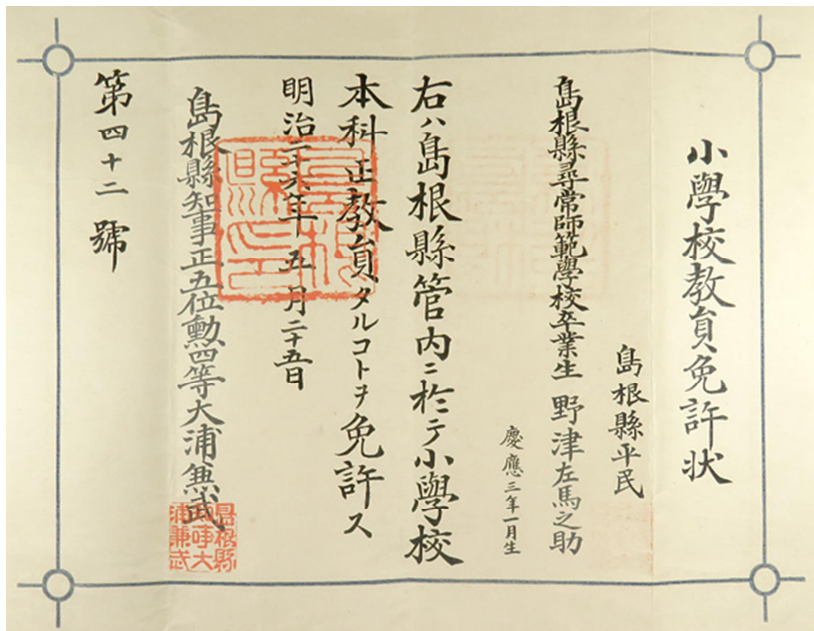 小學校教員免許状
島根縣平民
島根縣尋常師範學校卒業生 野津左馬之助
慶應三年一月生
右ハ島根縣管内ニ於テ小學校
本科正教員タルコトヲ免許ス
明治二十六年五月二十五日
島根縣知事正五位勲四等大浦兼武
第四十二號
島根縣印